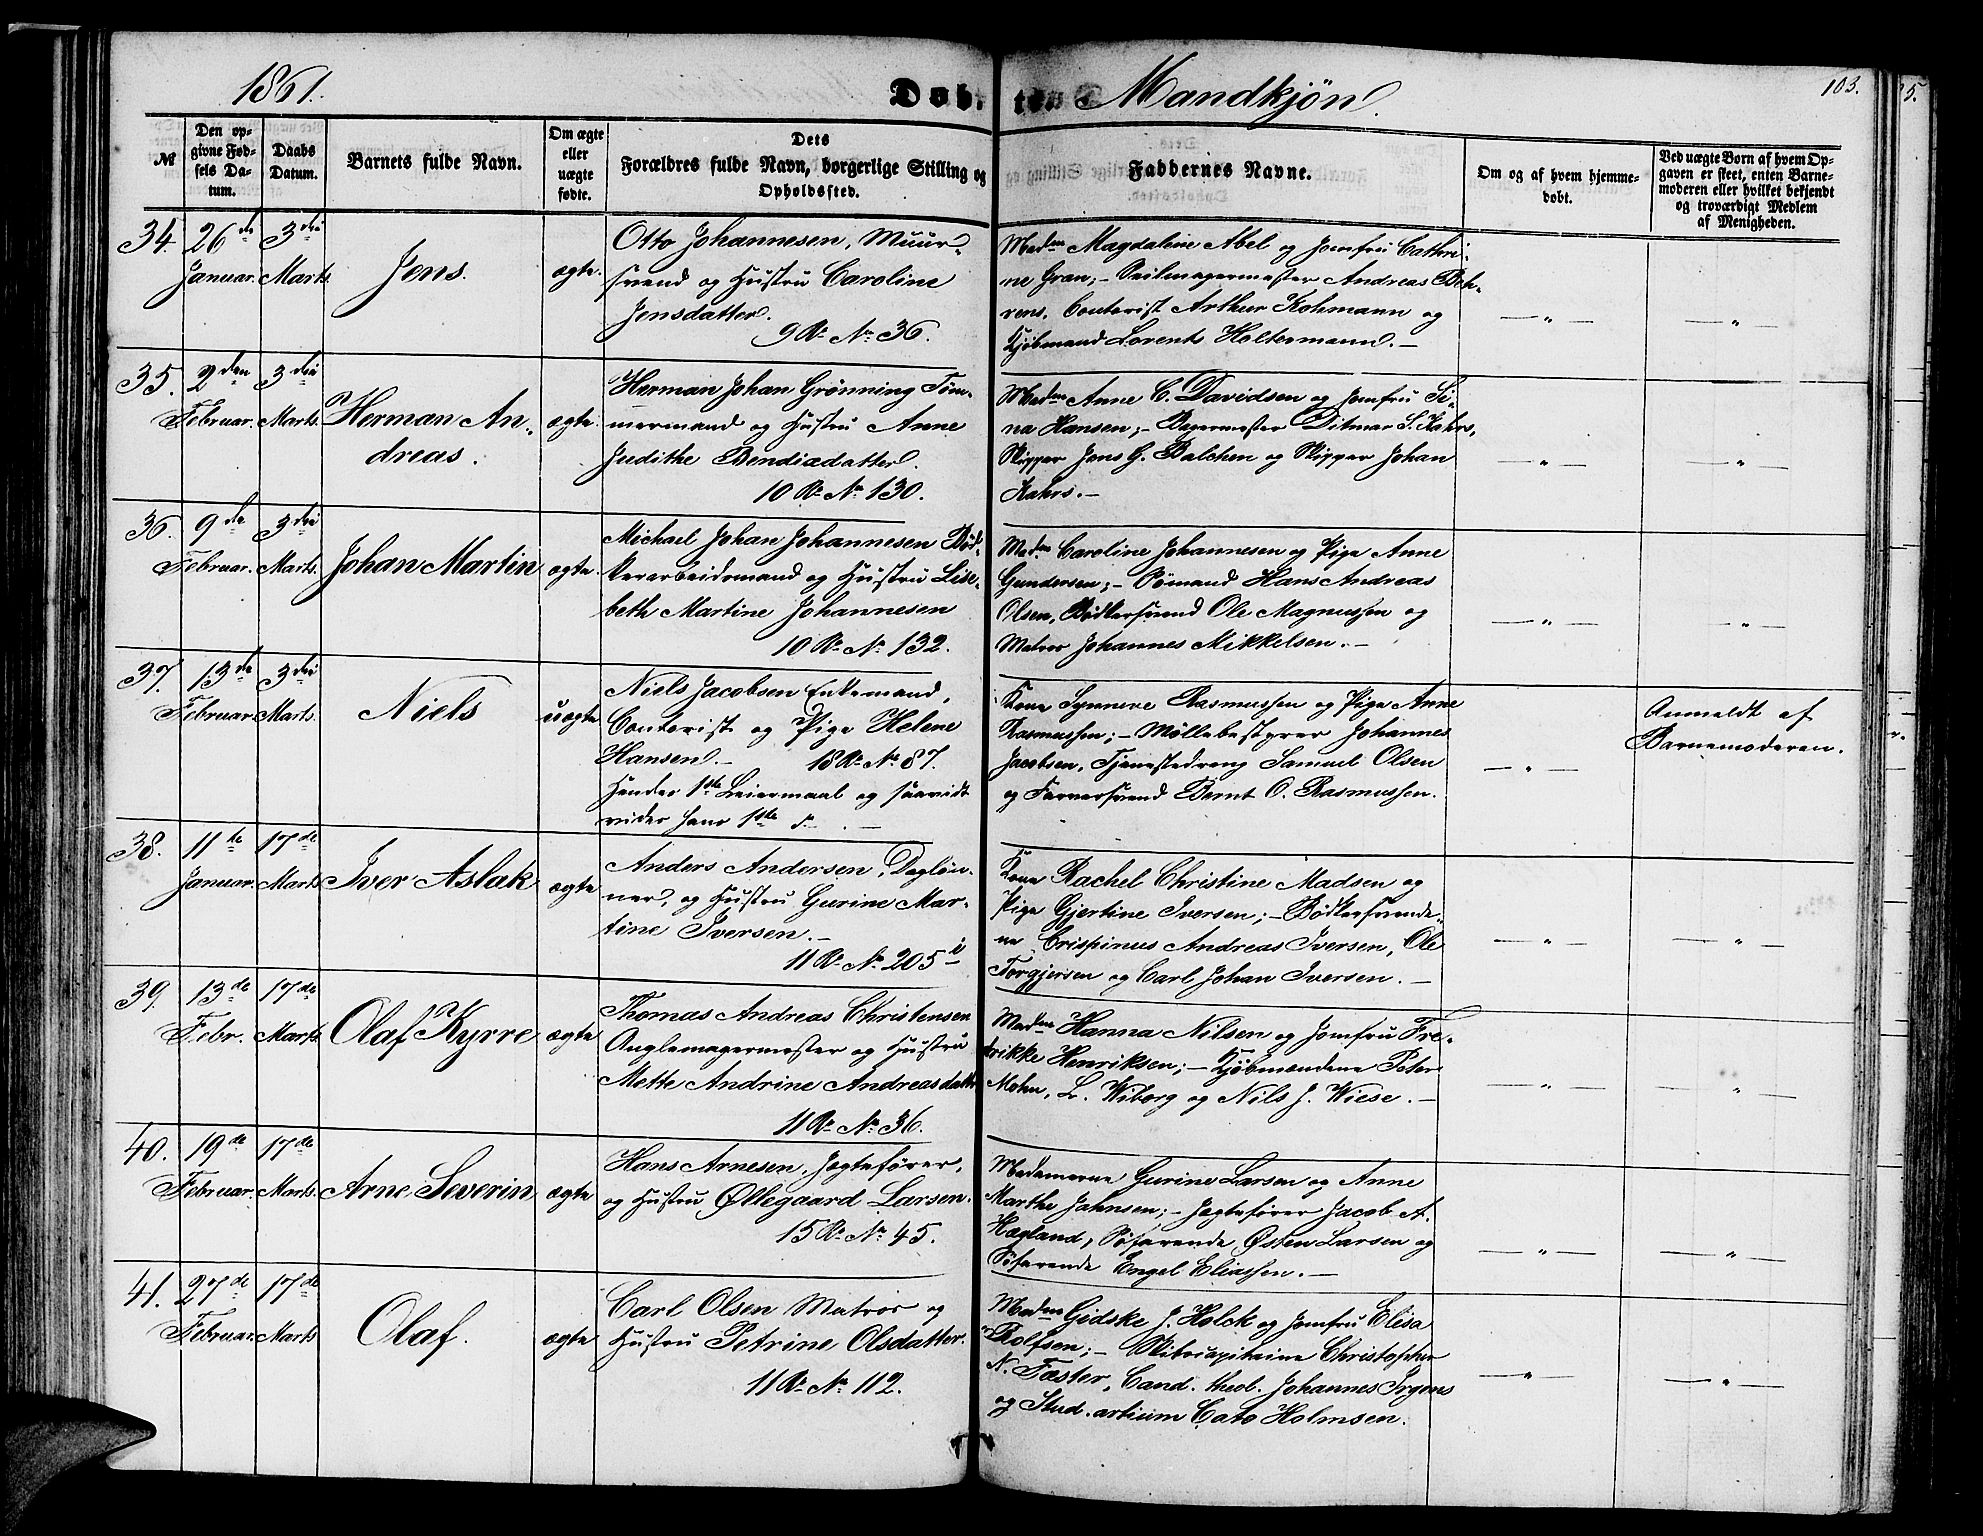 1861.
Døbte Mandkjøn.
103.
№
Den opgivne Fødsels Datum.
Daabs Datum.
Barnets fulde Navn.
Om ægte eller uægte fødte.
Dets Forældres fulde Navn, borgerlige Stilling og Opholdssted.
Faddernes Navne.
Om og af hvem hjemmedøbt.
Ved uægte Børn af hvem Opgaven er skeet, enten Barnemoderen eller hvilket bekjendt og troværdigt Medlem af Menigheden.
34.
26de Januar.
3die Marts.
Jens.
ægte.
Otto Johannesen, Muur-
svend og Hustru Caroline
Jensdatter.
9 R. № 36.
Madm Magdalene Abel og Jomfru Cathri-
ne Gran; – Seilmagermester Andreas Beh-
rens, Contorist Arthur Kohmann og
Kjøbmand Lorents Holtermann. –
— „ —
— „ —
35.
2den Februar.
3die Marts.
Herman An-
dreas.
ægte.
Herman Johan Grønning Tøm-
mermand og Hustru Anne
Judithe Bendixdatter.
10 R. № 130.
Madm Anne C. Davidsen og Jomfru Si-
na Hansen; – Bagermester Ditmar S. Kahrs,
Skipper Jens G. Balchen og Skipper Johan
Kahrs. –
— „ —
— „ —
36.
9de Februar.
3die Marts.
Johan Martin
ægte.
Michael Johan Johannesen Bød-
kerarbeidsmand og Hustru Lise-
beth Martine Johannesen
10 R. № 132.
Madm Caroline Johannesen og Pige Anne
Gundersen; – Sømand Hans Andreas
Olsen, Bødkersvend Ole Magnussen og
Matros Johannes Mikkelsen. –
— „ —
— „ —
37.
13de Februar.
3die Marts.
Niels
uægte
Niels Jacobsen Enkemand,
Contorist og Pige Helene
Hansen. – 18 R. № 87.
Hendes 1ste Leiermaal og saavidt
vides hans 1ste d – . –
Kone Synneve Rasmussen og Pige Anne
Rasmussen; – Møllebestyrer Johannes
Jacobsen, Tjenestedreng Samuel Olsen
og Farversvend Bernt O. Rasmussen.
— „ —
Anmeldt af
Barnemoderen.
38.
11te Januar.
17de Marts.
Iver Aslak
ægte
Anders Andersen, Dagløn-
ner, og Hustru Gurine Mar-
tine Iversen. –
11 R. № 205 i
Kone Rachel Christine Madsen og
Pige Gjertine Iversen; – Bødkersvende-
ne Crispinus Andreas Iversen, Ole
Torgjersen og Carl Johan Iversen. –
— „ —
— „ —
39.
13de Febr.
17de Marts.
Olaf Kyrre
ægte
Thomas Andreas Christensen
Anglemagermester og Hustru
Mette Andrine Andreasdatter
11 R. № 36.
Madm Hanna Nilsen og Jomfru Fre-
drikke Henriksen; – Kjøbmændene Peter
Mohn, L. Wiborg og Nils J. Wiese. –
— „ —
— „ —
40.
19de Februar.
17de Marts.
Arne Severin
ægte
Hans Arnesen, Jægtefører,
og Hustru Øllegaard Larsen.
15 R. № 45.
Madamerne Gurine Larsen og Anne
Marthe Johnsen; – Jægtefører Jacob A.
Hægland, Søfarende Østen Larsen og
Søfarende Engel Eliassen. –
— „ —
— „ —
41.
27de Februar.
17de Marts
Olaf.
ægte
Carl Olsen Matros og
Hustru Petrine Olsdatter.
11 R. № 112.
Madm Gidske J. Holck og Jomfru Elisa
Rolfsen; – Skibscapitaine Christopher
N. Faster, Cand. theol. Johannes Irgens
og Stud. artium Cato Holmsen.
— „ —
— „ —